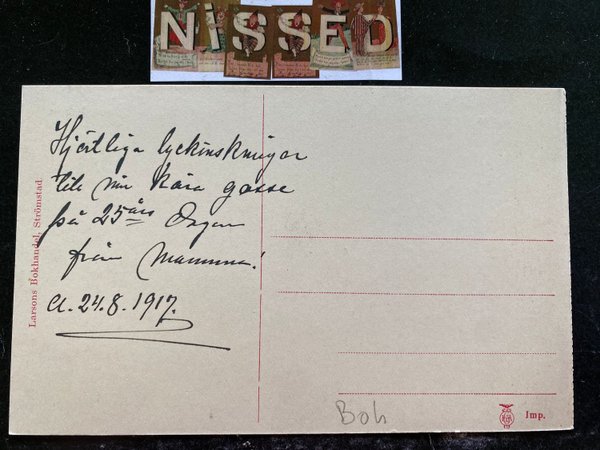 NiSSED
Hjärtliga lyckönskningar
till min kära gosse
på 25 års Dagen
från Mamma!
d. 24.8.1917.
Larsons Bokhandel, Strömstad
Boh
Imp.